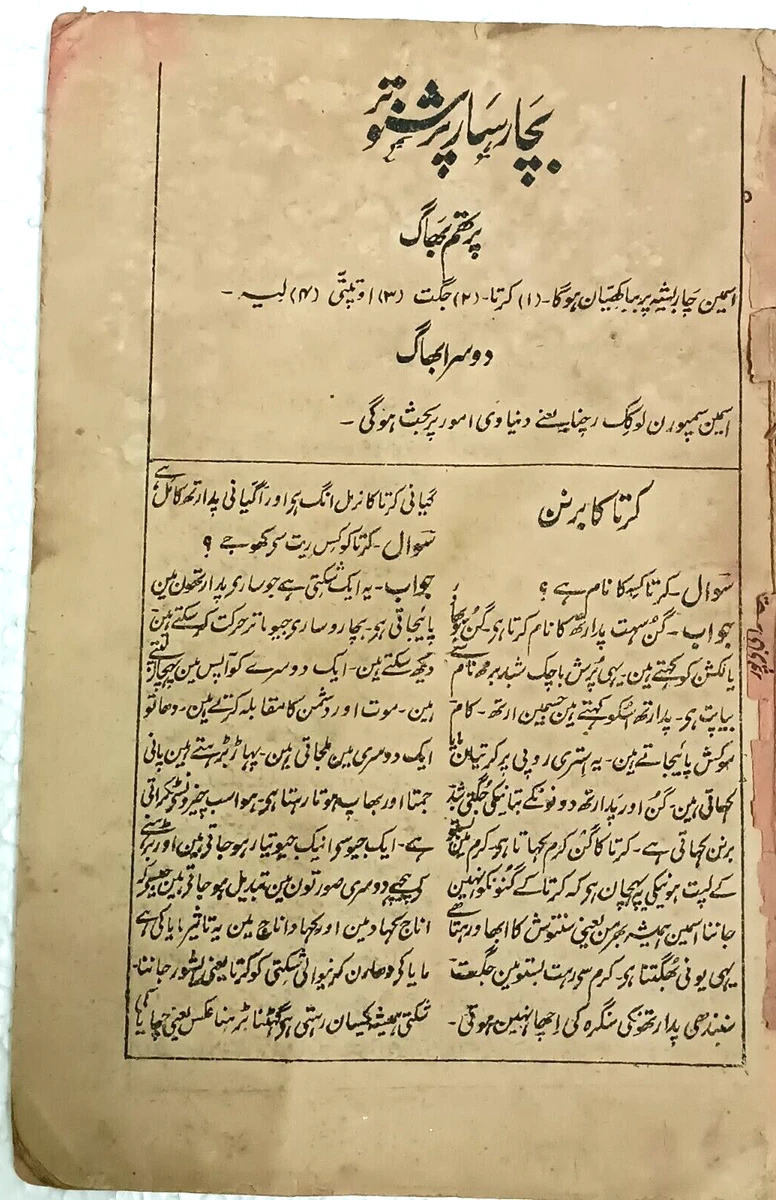 بچار سار پرشنوتر
پرتھم بھاگ
اسمین چار بشیہ پر بیاکھیان ہوگا - (۱) کرتا - (۲) جگت (۳) اوتپتّی (۴) لیہ -
دوسرا بھاگ
اسمین سمپورن لوکک رچنا یعنے دنیاوی امور پر بحث ہوگی -
کرتا کا برنن
سوال - کرتا کسکا نام ہے ؟
جواب - گن سہت پدارتھ کا نام کرتا ہی - گن سبھاؤ
یا لکشن کو کہتے ہین - یہی پُرش باچک شبد برمھ نام سے
بیاپت ہی - پدارتھ اُسکو کہتے ہین جسمین ارتھ - کام
موکش پائیجاتے ہین - یہ استری روپی پرکرتی
کہاتی ہین - گُن اور پدارتھ دونونکے بتانیکی جُگتی شبد
برنن کہاتی ہے - کرتا کا گُن کرم کہاتا ہی - کرم مین
کے لپت ہونیکی یہ پہچان ہی کہ کرتا کے گُنونکو نہین
جانتا اسمین ہمیشہ بھرمن یعنی سنتوش کا ابھاو رہتا ہے
یہی یونی بھگتتا ہی - کرم سی رہت بستو مین جگت
سنبندھی پدارتھونکی سنگرہ کی اِچھا نہین ہوتی -
گیانی کرتا کا نرمل انگ ہی اور اگیانی پدارتھ کا مل ہے
سوال - کرتا کو کس ریت سی کھوجے ؟
جواب - یہ ایک شکتی ہے جو ساری پدارتھون مین
پائیجاتی ہی - بچارو ساری جیو ماتر حرکت کر سکتے ہین
دیکھ سکتے ہین - ایک دوسرے کو آپس مین پہچان لیتے
ہین - موت اور دشمن کا مقابلہ کرتے ہین - دھاتو
ایک دوسری مین ملجاتی ہین - پہاڑ بڑہتے ہین پانی
جمتا اور بھاپ ہوتا رہتا ہی - ہوا سب چیزونسی ٹکراتی
ہے - ایک جیو سی انیک جیو تیار ہو جاتی ہین اور بڑہنے
کی پیچھے دوسری صورتون مین تبدیل ہو جاتی ہین جیسے کہ
اناج کہاد مین اور کہاد اناج مین یہ تاثیر مایا کی ہے
مایا کی دھارن کرنیوالی شکتی کو کرتا یعنی ایشور جاننا -
شکتی ہمیشہ یکسان رہتی ہی گھٹنا بڑہنا عکس یعنی چھایا